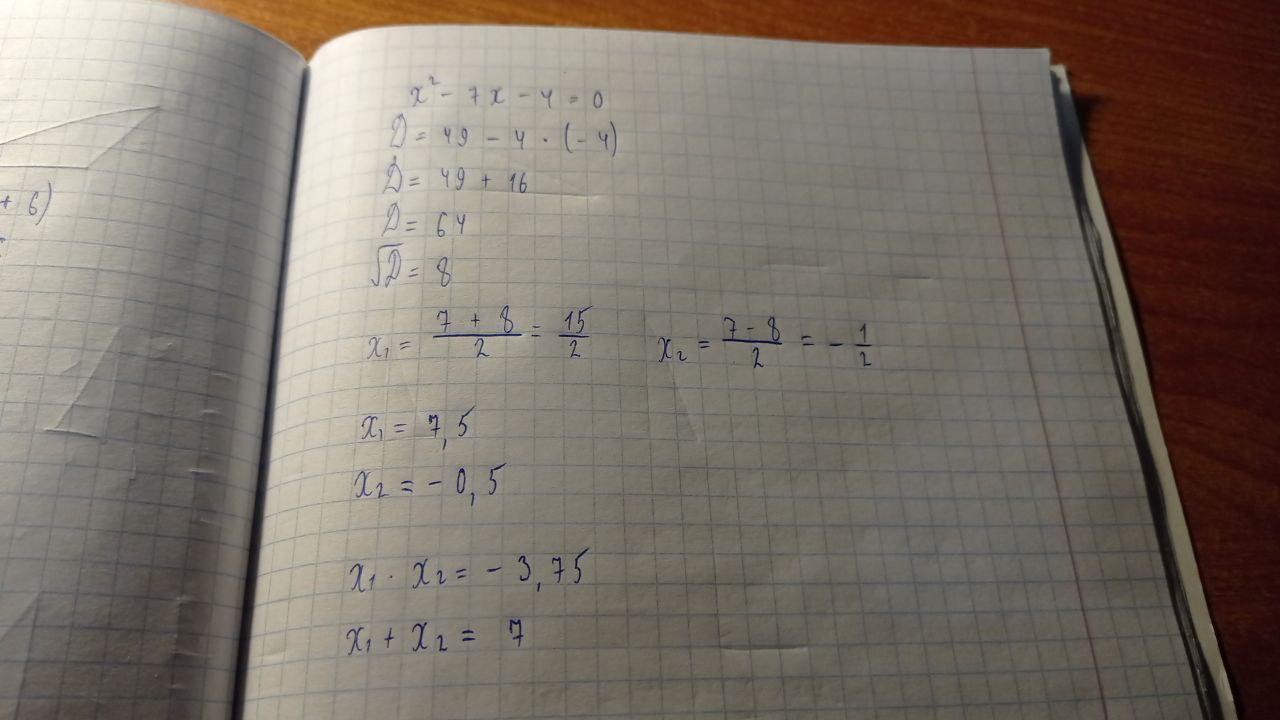 + 6)
x² - 7x - 4 = 0
D = 49 - 4 · (-4)
D = 49 + 16
D = 64
√D = 8
x₁ = (7 + 8)/2 = 15/2    x₂ = (7 - 8)/2 = - 1/2
x₁ = 7,5
x₂ = - 0,5
x₁ · x₂ = - 3,75
x₁ + x₂ = 7